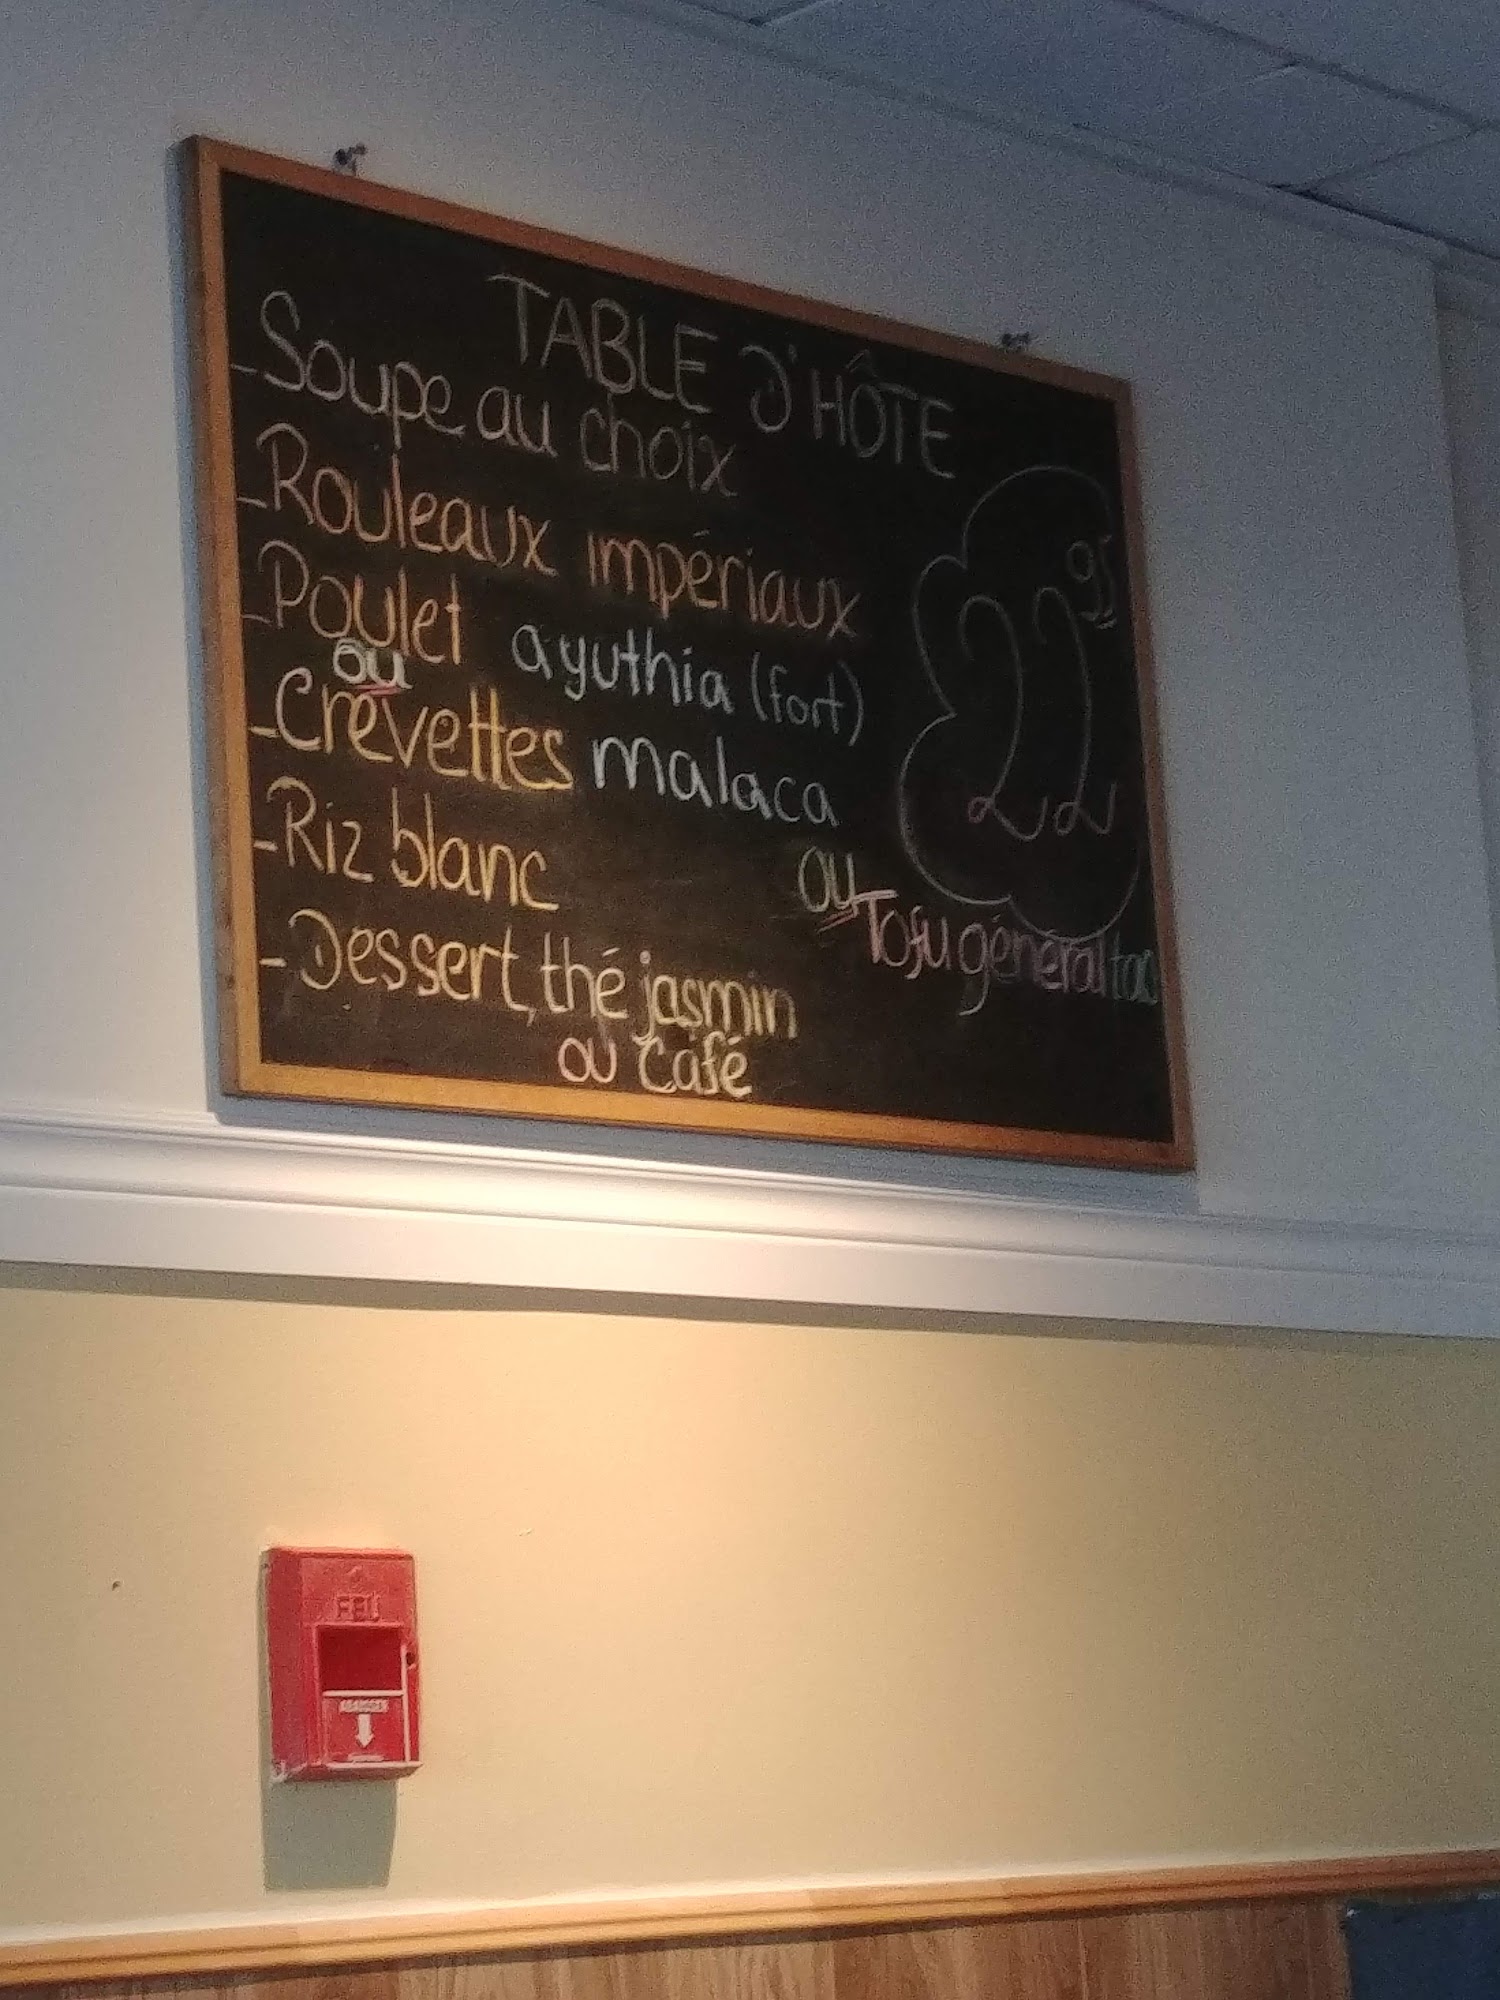 TABLE D'HÔTE
-Soupe au choix
-Rouleaux impériaux
-Poulet ayuthia (fort)
ou
-Crevettes malaca
22 95
-Riz blanc
ou Tofu général tao
-Dessert, thé jasmin
ou café
FEU